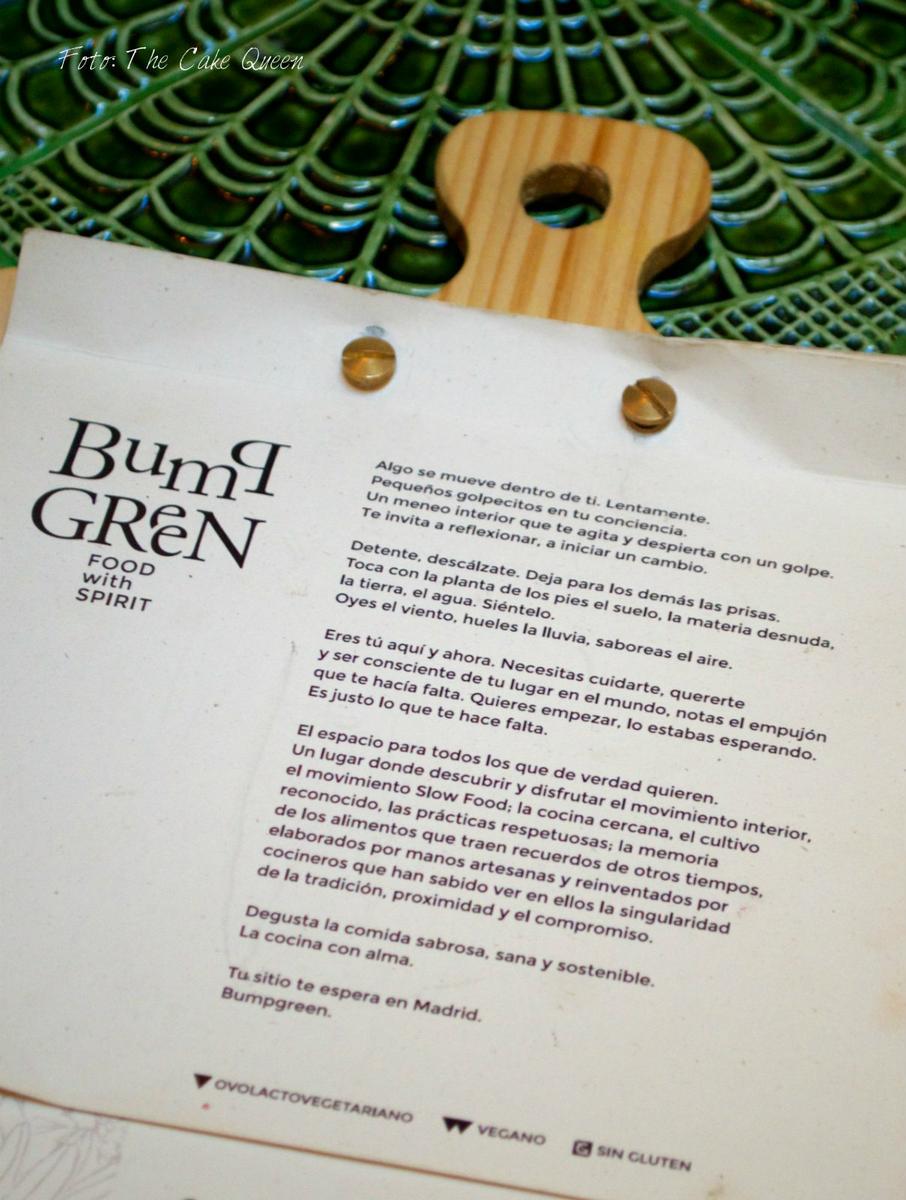 Foto: The Cake Queen
BumP
GReeN
FOOD
with
SPIRIT
Algo se mueve dentro de ti. Lentamente.
Pequeños golpecitos en tu conciencia.
Un meneo interior que te agita y despierta con un golpe.
Te invita a reflexionar, a iniciar un cambio.
Detente, descálzate. Deja para los demás las prisas.
Toca con la planta de los pies el suelo, la materia desnuda,
la tierra, el agua. Siéntelo.
Oyes el viento, hueles la lluvia, saboreas el aire.
Eres tú aquí y ahora. Necesitas cuidarte, quererte
y ser consciente de tu lugar en el mundo, notas el empujón
que te hacía falta. Quieres empezar, lo estabas esperando.
Es justo lo que te hace falta.
El espacio para todos los que de verdad quieren.
Un lugar donde descubrir y disfrutar el movimiento interior,
el movimiento Slow Food; la cocina cercana, el cultivo
reconocido, las prácticas respetuosas; la memoria
de los alimentos que traen recuerdos de otros tiempos,
elaborados por manos artesanas y reinventados por
cocineros que han sabido ver en ellos la singularidad
de la tradición, proximidad y el compromiso.
Degusta la comida sabrosa, sana y sostenible.
La cocina con alma.
Tu sitio te espera en Madrid.
Bumpgreen.
OVOLACTOVEGETARIANO VEGANO G SIN GLUTEN